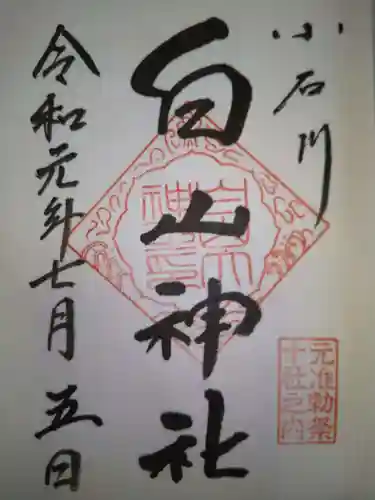 小石川
白山神社
令和元年七月五日
元准勅祭
十社之内